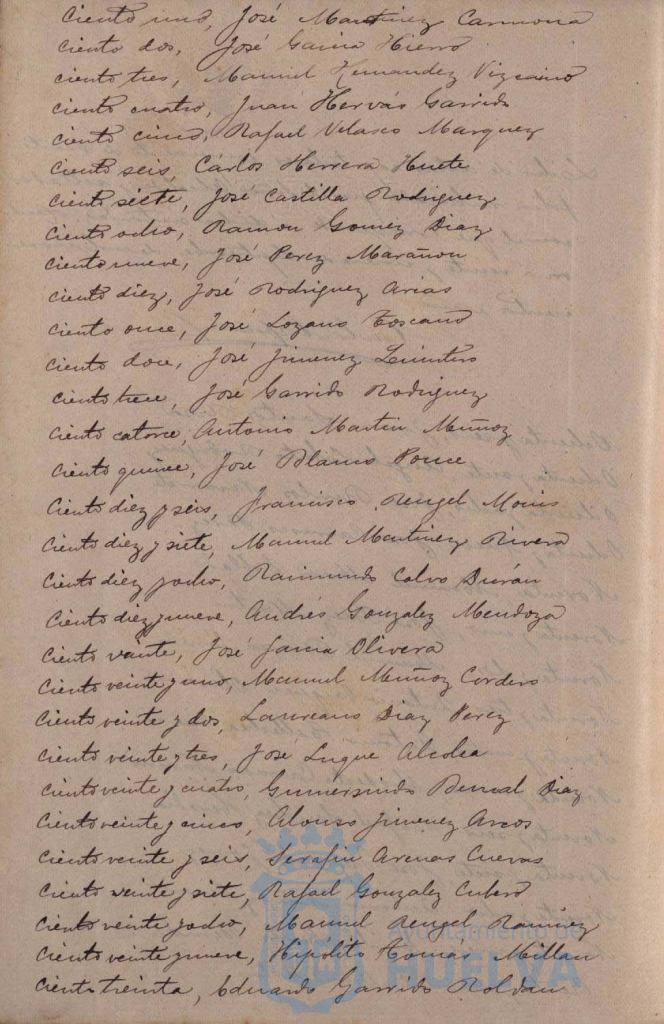 Ciento uno, José Martinez Carmona
Ciento dos, José Garcia Hierro
Ciento tres, Manuel Hernandez Vizcaino
Ciento cuatro, Juan Hervás Garrido
Ciento cinco, Rafael Velasco Marquez
Ciento seis, Cárlos Herrera Huete
Ciento siete, José Castilla Rodriguez
Ciento ocho, Ramon Gomez Diaz
Ciento nueve, José Perez Marañon
Ciento diez, José Rodriguez Arias
Ciento once, José Lozano Toscano
Ciento doce, José Jimenez
Ciento trece, José Garrido Rodriguez
Ciento catorce, Antonio Martin Muñoz
Ciento quince, José Blanco Ponce
Ciento diez y seis, Francisco Rengel
Ciento diez y siete, Manuel Martinez Rivera
Ciento diez y ocho, Raimundo Calvo Durán
Ciento diez y nueve, Andrés Gonzalez Mendoza
Ciento veinte, José Garcia Olivera
Ciento veinte y uno, Manuel Muñoz Cordero
Ciento veinte y dos, Laureano Diaz Perez
Ciento veinte y tres, José Luque Alcolea
Ciento veinte y cuatro, Gumersindo Bernal Diaz
Ciento veinte y cinco, Alonso Jimenez Arcos
Ciento veinte y seis, Serafin Arenas Cuevas
Ciento veinte y siete, Rafael Gonzalez Cubero
Ciento veinte y ocho, Manuel Rengel Ramirez
Ayuntamiento de
Ciento veinte y nueve, Hipólito Tomás Millan
HUELVA
Ciento treinta, Eduardo Garrido Roldan